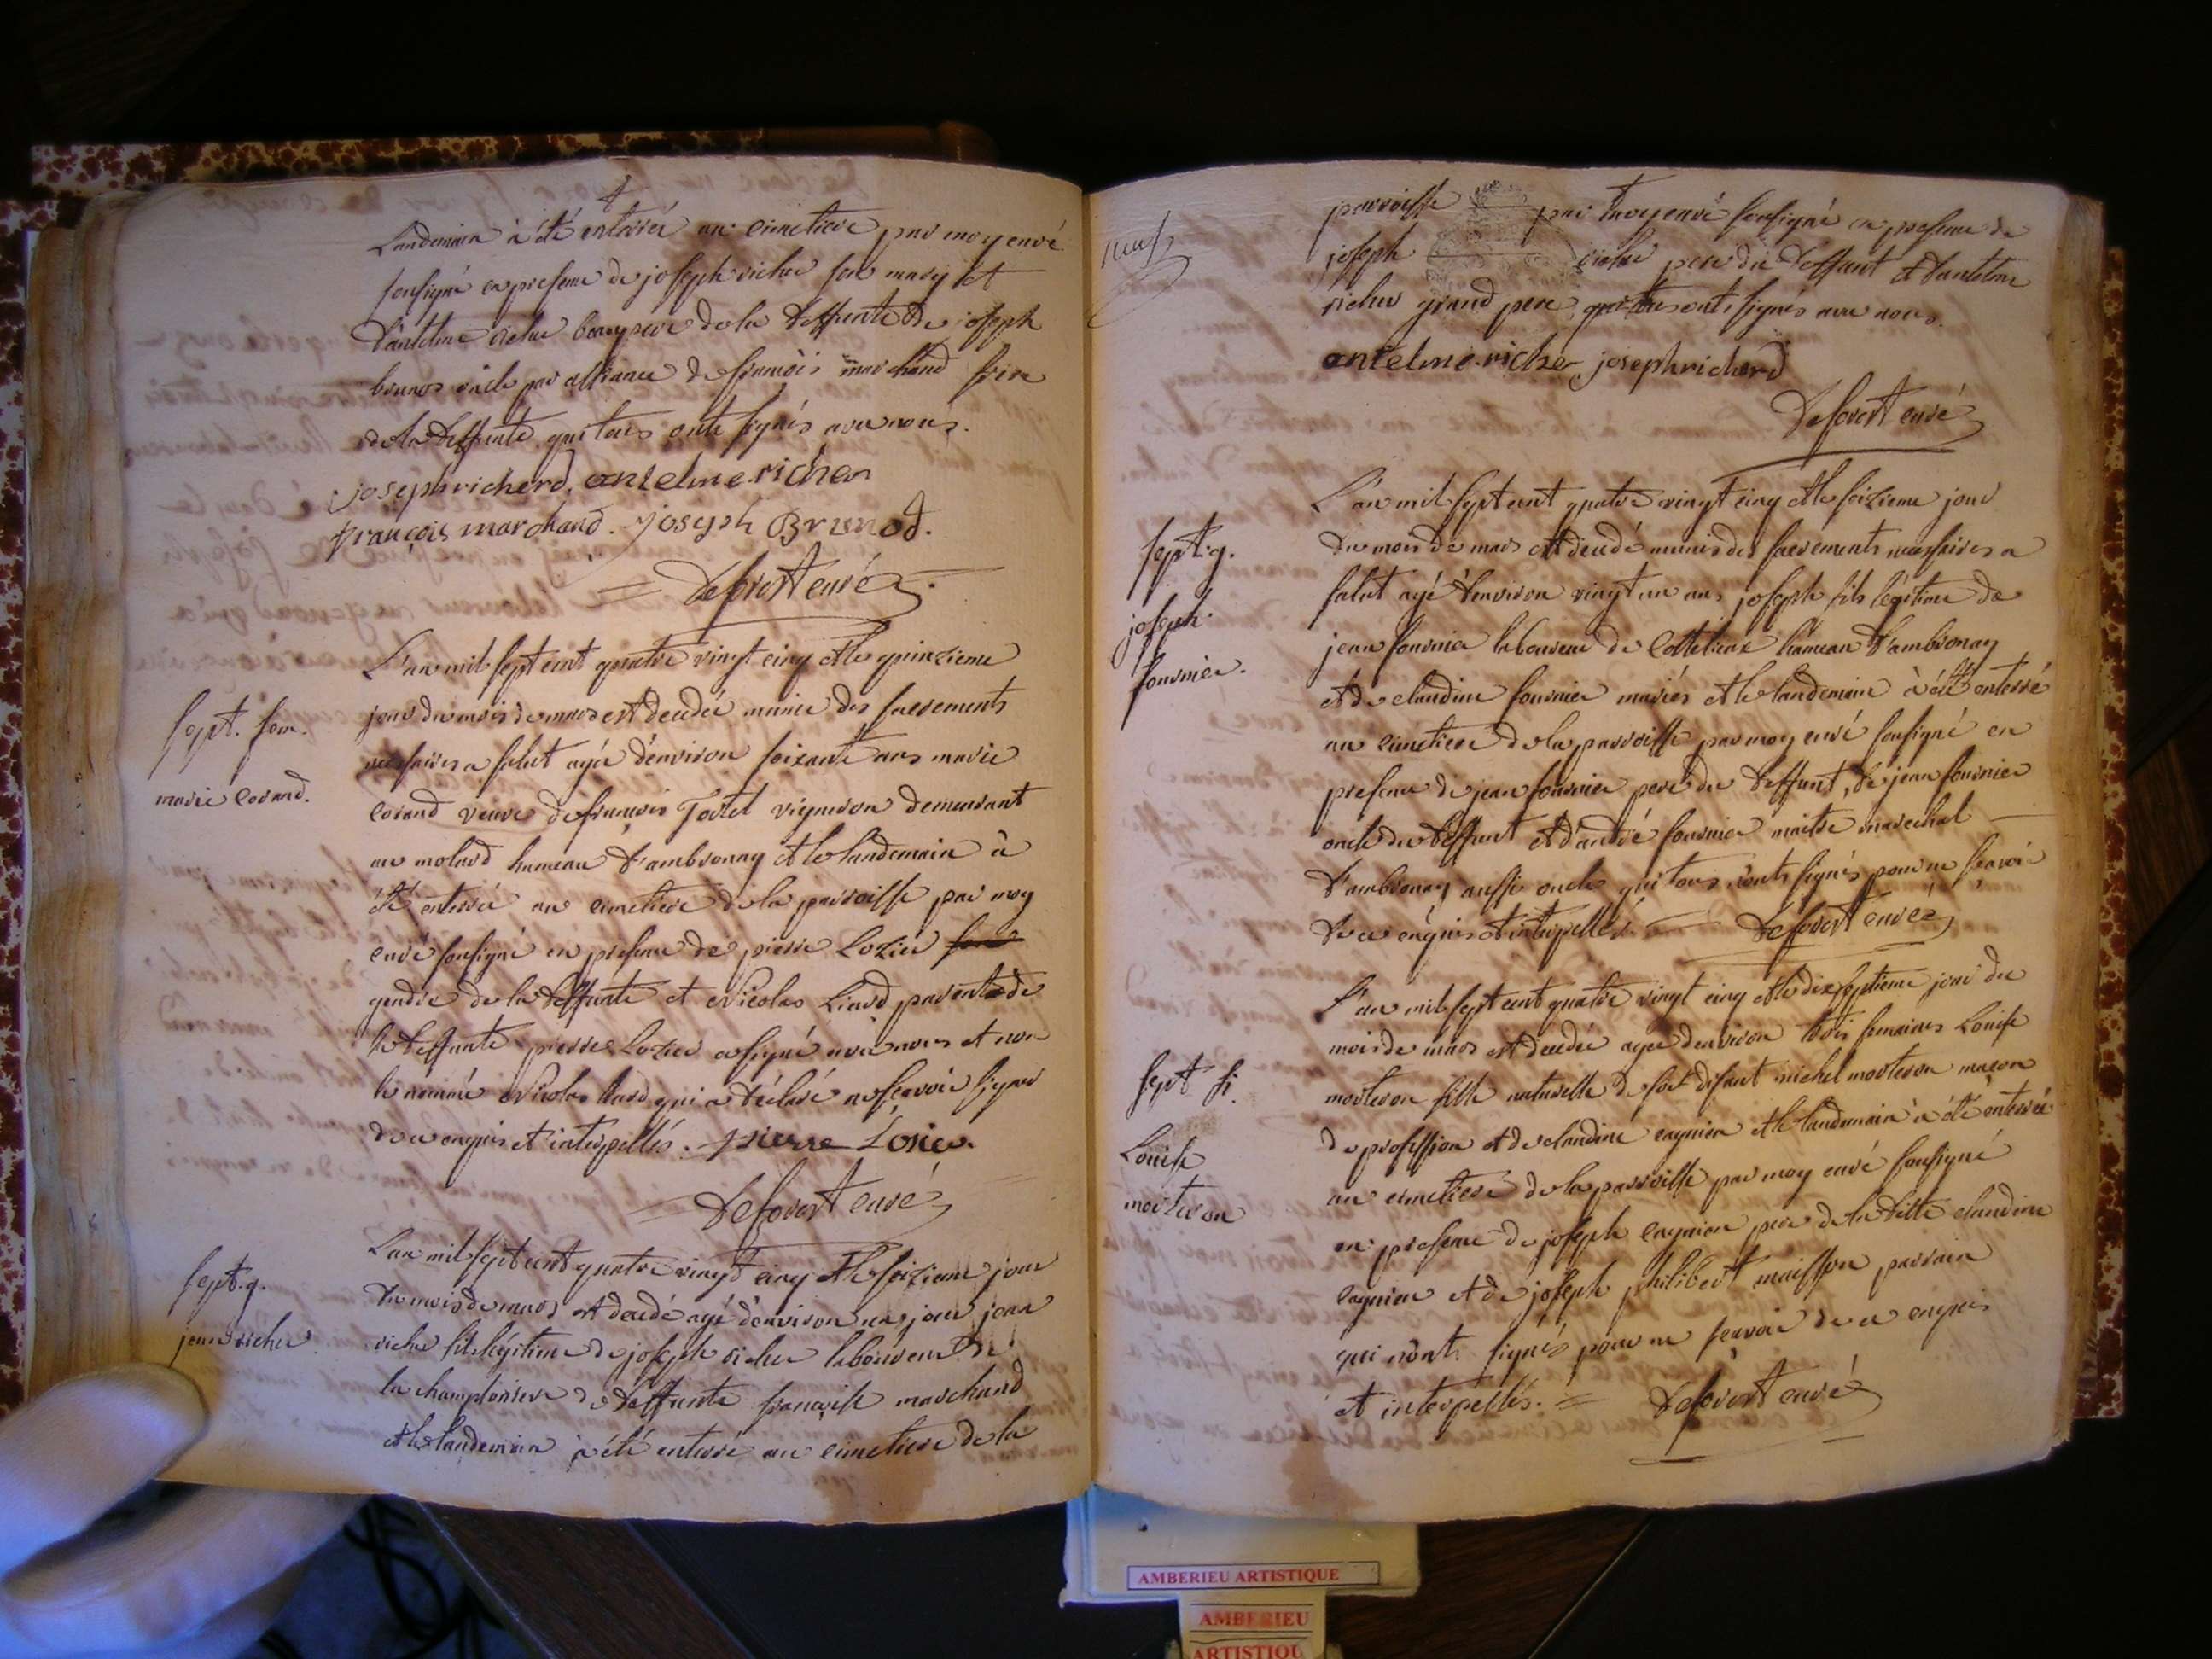 Landemain à été enterrée au cimetiere par moy curé
sousigné en presence de joseph richer son mary et
d'antelme richer beaupere de la deffunte de joseph
brunod oncle par alliance de françois marchand frere
de la deffunte qui tous onts signés avec nous.
joseph richerd. antelme richer
françois marchand. joseph Brunod.
Deforest curé
L'an mil sept cent quatre vingt cinq et le quinzieme
jour du mois de mars est decedée munie des sacrements
necessaires a salut agée d'environ soixante ans marie
corand veuve de françois Tortel vigneron demeurant
au molard hameau d'ambronay et le landemain à
été enterrée au cimetiere de la parroisse par moy
curé sousigné en presence de pierre Lozier
gendre de la deffunte et Nicolas Liard parent de
la deffunte pierre Lozier a signé avec nous et non
le nommé Nicolas liard qui a déclaré ne sçavoir signer
de ce enquis et interpellés. pierre Losier.
Deforest curé
sept. fem.
marie Corand.
L'an mil sept cent quatre vingt cinq et le seizieme jour
du mois de mars est decedé agé d'environ un jour jean
richer fils légitime de joseph richer laboureur de
la championiere de deffunte françoise marchand
et le landemain à été enterré au cimetiere de la
sept. g.
jean richer
neuf
parroisse par moy curé sousigné en presence de
joseph richer pere du deffunt et d'antelme
richer grand pere qui tous onts signés avec nous.
antelme richer joseph richerd
Deforest curé
L'an mil sept cent quatre vingt cinq et le seizieme jour
du mois de mars est decedé munis des sacrements necessaires a
salut agé d'environ vingt un ans joseph fils légitime de
jean fournier laboureur de Cottelieux hameau d'ambronay
et de claudine fournier mariés et le landemain à été enterré
au cimetiere de la parroisse par moy curé sousigné en
presence de jean fournier pere du deffunt, de jean fournier
oncle du deffunt et d'andré fournier maitre marechal
d'ambronay aussi oncle qui tous n'onts signés pour ne sçavoir
de ce enquis et interpellés. Deforest curé
sept. g.
joseph
fournier.
L'an mil sept cent quatre vingt cinq et le dix septieme jour du
mois de mars est decedée agée d'environ trois semaines Louise
morteron fille naturelle de soit disant michel morteron maçon
de profession et de claudine cagnion et le landemain à été enterrée
au cimetiere de la parroisse par moy curé sousigné
en presence de joseph cagnion pere de la ditte claudine
cagnion et de joseph philibert maisson parrain
qui n'ont signés pour ne sçavoir de ce enquis
et interpellés. Deforest curé
sept fi.
Louise
morteron
AMBERIEU ARTISTIQUE
AMBERIEU
ARTISTIQU